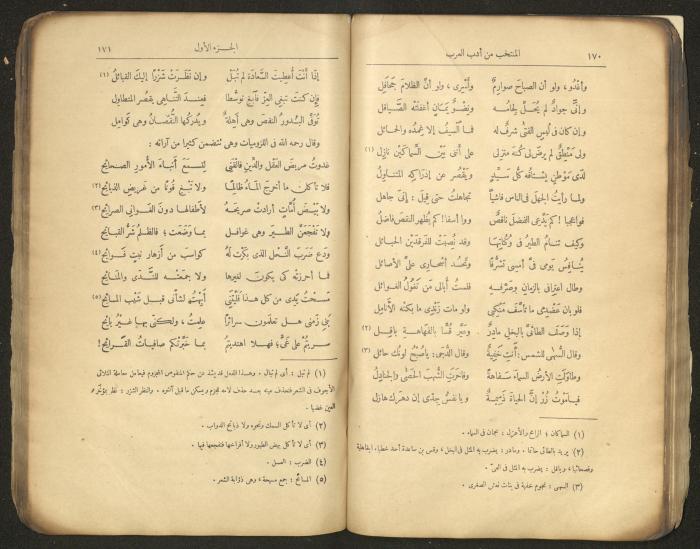 ١٧٠
المنتخب من أدب العرب
وأغدو، ولو أن الصباح صوارمٌ وأسرى، ولو أن الظلام جحافل
وإنى جوادٌ لم يُحَلَّ لجامُه ونِضوٌ يمانٍ أغفلته الصياقل
وإن كان فى لُبس الفتى شرفٌ له فما السيف إلا غمده والحمائل
ولى منطقٌ لم يرضَ لى كُنه منزلى على أننى بين السماكين نازل (١)
لدى موطنٍ يشتاقه كلُّ سيدٍ ويقصر عن إدراكه المتناول
ولما رأيت الجهل فى الناس فاشيا تجاهلت حتى قيل: إنى جاهل
فواعجبا! كم يدّعى الفضلَ ناقصٌ ووا أسفا! كم يُظهر النقصَ فاضلُ
وكيف تنام الطير فى وُكُناتها وقد نُصِبت للفرقدين الحبائل
ينافس يومى فىّ أمسى تشرّفا وتحسُد أسحارى علىّ الأصائل
وطال اعترافى بالزمان وصرفه فلست أبالى من تغول الغوائل
فلو بان عضدى ما تأسف منكبى ولو مات زندى ما بكته الأنامل
إذا وصف الطائىَّ بالبخل مادرٌ وعيّر قُسًّا بالفهاهة باقل (٢)
وقال السُّهى للشمس: أنتِ خفيّة وقال الدجى: يا صبحُ لونك حائل (٣)
وطاولتِ الأرضُ السماءَ سفاهة وفاخرت الشهبَ الحصى والجنادل
فيا موتُ زُر إن الحياة ذميمة ويا نفسُ جِدّى إن دهرك هازل
(١) السماكان: الرامح والأعزل: نجمان فى السماء.
(٢) يريد بالطائى حاتما. ومادر: يضرب به المثل فى البخل، وقس بن ساعدة أحد خطباء الجاهلية
وفصحائها، وباقل: يضرب به المثل فى العىّ.
(٣) السهى: نجوم خفية فى بنات نعش الصغرى.
الجزء الأول
١٧١
إذا أنت أُعطيت السعادة لم تُبَل وإن نظرت شزرًا إليك القبائل (١)
فإن كنت تبغى العزّ فابغ توسطا فعند التناهى يقصر المتطاول
تُوَقَّى البدورُ النقصَ وهى أهلّة ويدركها النقصان وهى كوامل
وقال رحمه الله فى اللزوميات وهى تتضمن كثيرا من آرائه:
غدوتَ مريض العقل والدين فالقنى لتسمع أنباء الأمور الصحائح
فلا تأكلن ما أخرج الماء ظالما ولا تبغ قوتا من غريض الذبائح (٢)
ولا بيض أُمّات أرادت صريحه لأطفالها دون الغوانى الصرائح (٣)
ولا تفجعنّ الطير وهى غوافل بما وضعت؛ فالظلم شرّ القبائح
ودع ضَرَب النحل الذى بكرت له كواسب من أزهار نبت فوائح (٤)
فما أحرزته كى يكون لغيرها ولا جمعته للندى والمنائح
مسحتُ يدى من كل هذا فليتنى أبهتُ لشأنى قبل شيب المسائح (٥)
بنى زمنى هل تعلمون سرائرًا علمتُ، ولكنى بها غير بائح
سريتم على غىّ؛ فهلا اهتديتم بما خبّرتكم صافيات القرائح!
(١) لم تبل: أى لم تبال. وهذا الفعل قد يشذ من حكم المنقوص المجزوم فيعامل معاملة الثلاثى
الأجوف فى الشعر فتحذف عينه بعد حذف لامه للجزم ويسكن ما قبل آخره. والنظر الشزر: نظر بمؤخر
العين غضبا.
(٢) أى لا تأكل السمك ونحوه ولا ذبائح الدواب.
(٣) أى لا تأكل بيض الطيور ولا أفراخها فتفجعها فيها.
(٤) الضرب: العسل.
(٥) المسائح: جمع مسيحة، وهى ذؤابة الشعر.